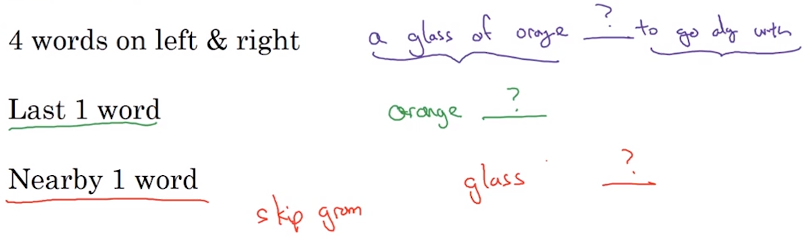 4 words on left & right a glass of orange ? to go alog with
Last 1 word orange ?
Nearby 1 word glass ?
skip gram